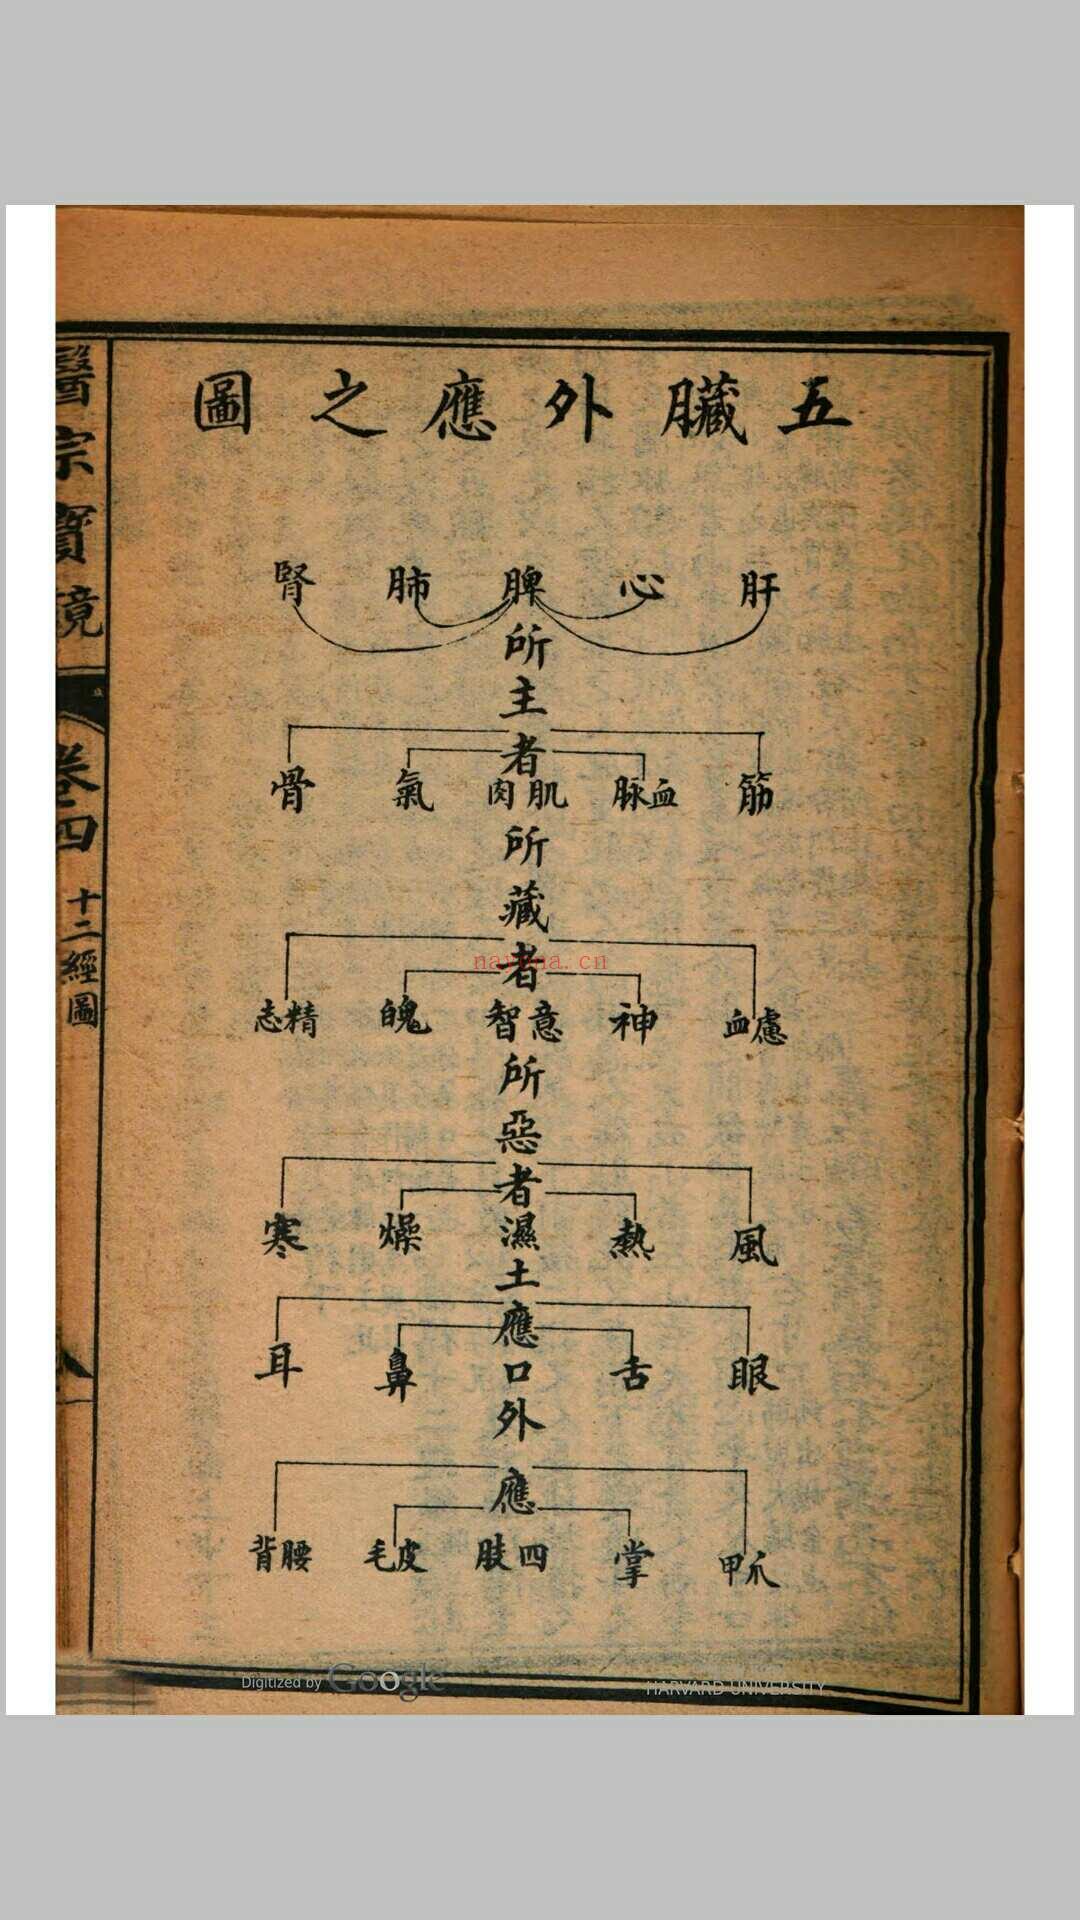 五臟外應之圖
肝 心 脾 肺 腎
所主者
筋 血脉 肌肉 氣 骨
所藏者
血慮 神 意智 魄 精志
所惡者
風 熱 濕土 燥 寒
應
眼 舌 口 鼻 耳
外應
爪甲 掌 四肢 皮毛 腰背
醫宗寶鏡
卷四
十二經圖
nayona.cn
Digitized by Google
HARVARD UNIVERSITY